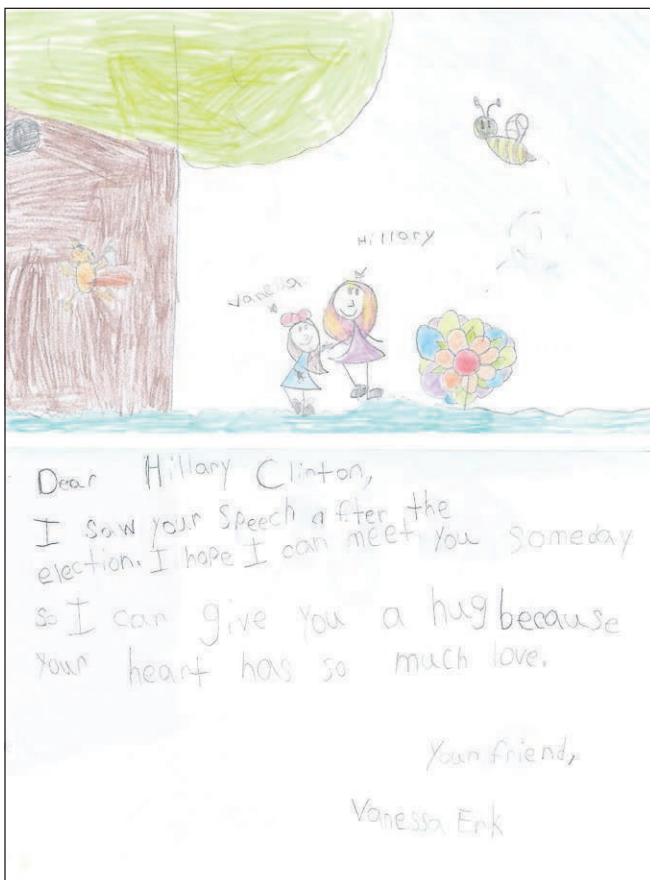 Hillary
Vanessa
Dear Hillary Clinton,
I saw your speech after the
election. I hope I can meet you someday
so I can give you a hug because
your heart has so much love.
Your friend,
Vanessa Erk